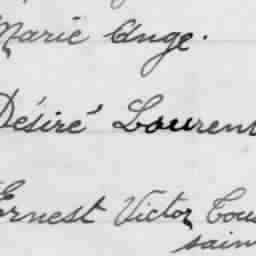 Marie Ange.
Désiré Laurent
Ernest Victor Tous
sain